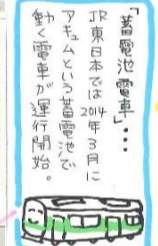 「蓄電池電車」…
JR東日本では2014年3月に
アキュムという蓄電池で
動く電車が運行開始。